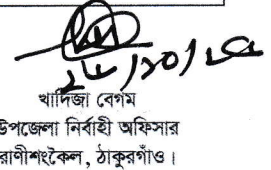 ২৮/১০/২৫
খাদিজা বেগম
উপজেলা নির্বাহী অফিসার
রাণীশংকৈল, ঠাকুরগাঁও।